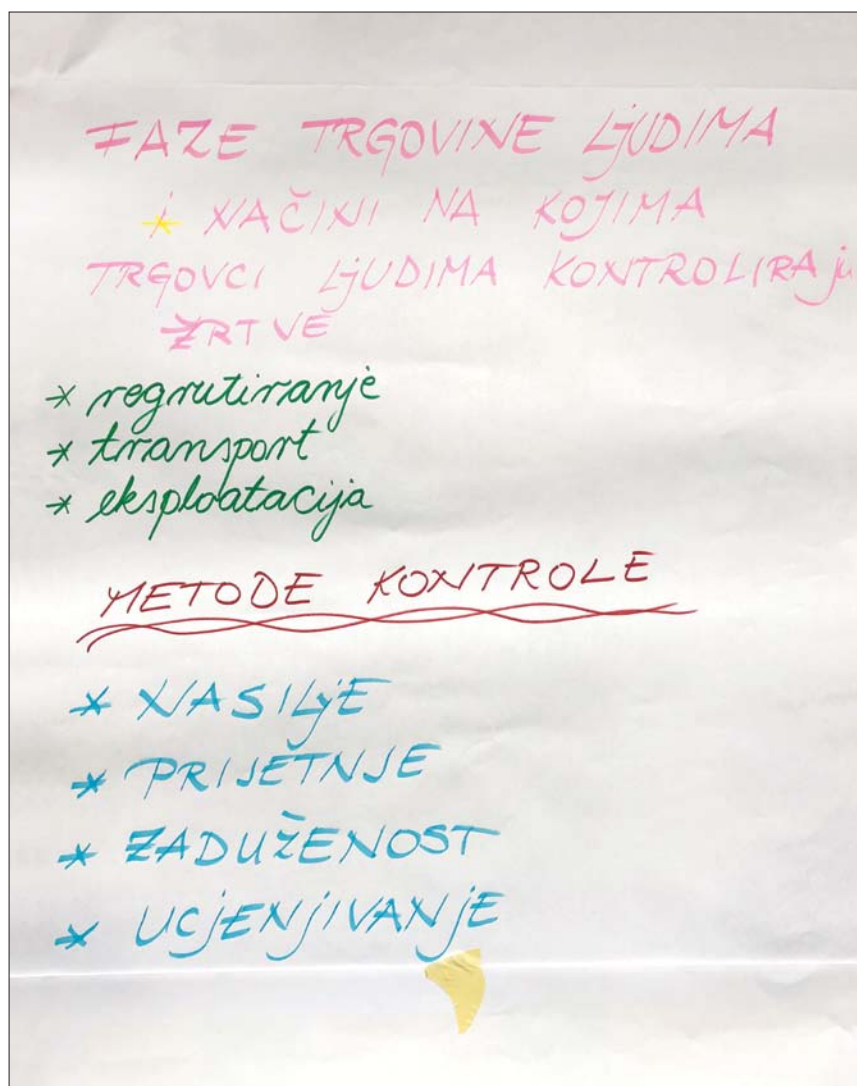 FAZE TRGOVINE LjUDIMA
* i NAČINI NA KOJIMA
TRGOVCI LjUDIMA KONTROLIRAju
ŽRTVE
* regrutiranje
* transport
* eksploatacija
METODE KONTROLE
* NASILjE
* PRIJETNJE
* ZADUŽENOST
* UCjENjIVANjE